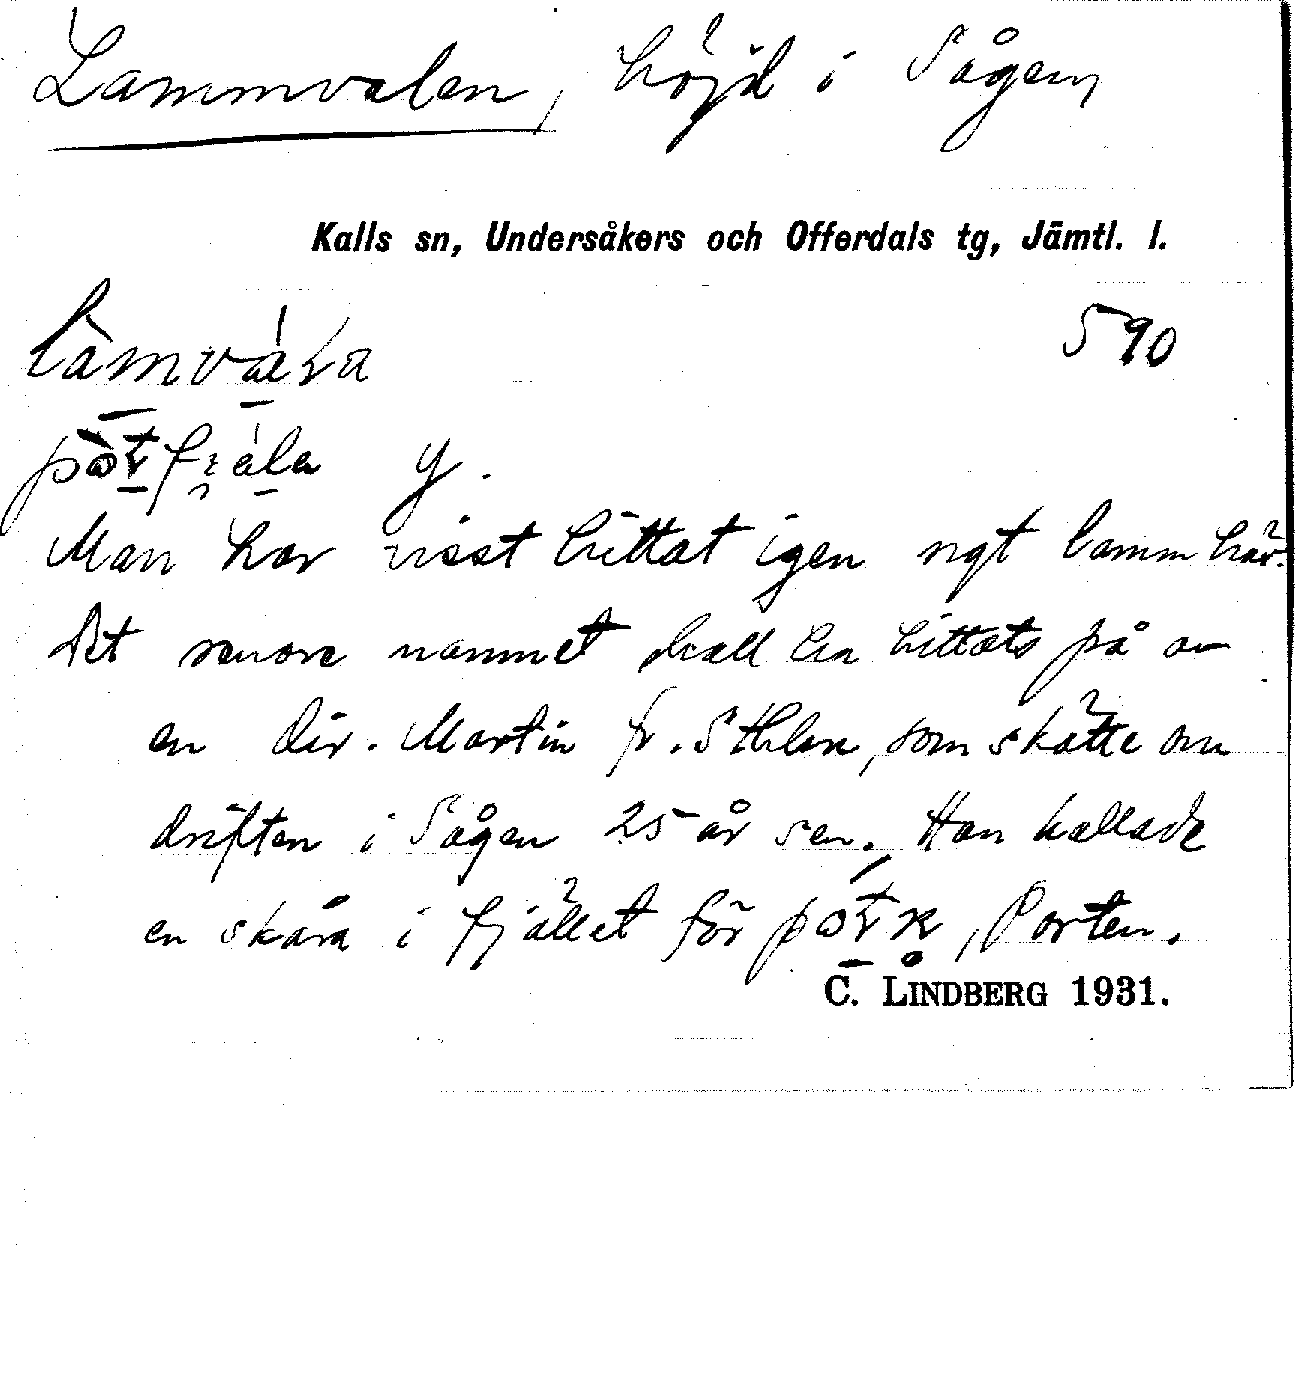 Lammvalen, höjd i Sågen
Kalls sn, Undersåkers och Offerdals tg, Jämtl. l.
590
y.
Man har visst hittat igen ngt lamm här.
Det senare namnet skall ha hittats på av
en dir. Martin fr. Sthlm, som skötte om
driften i Sågen 25 år sen. Han kallade
en skåra i fjället för Porten.
C. LINDBERG 1931.